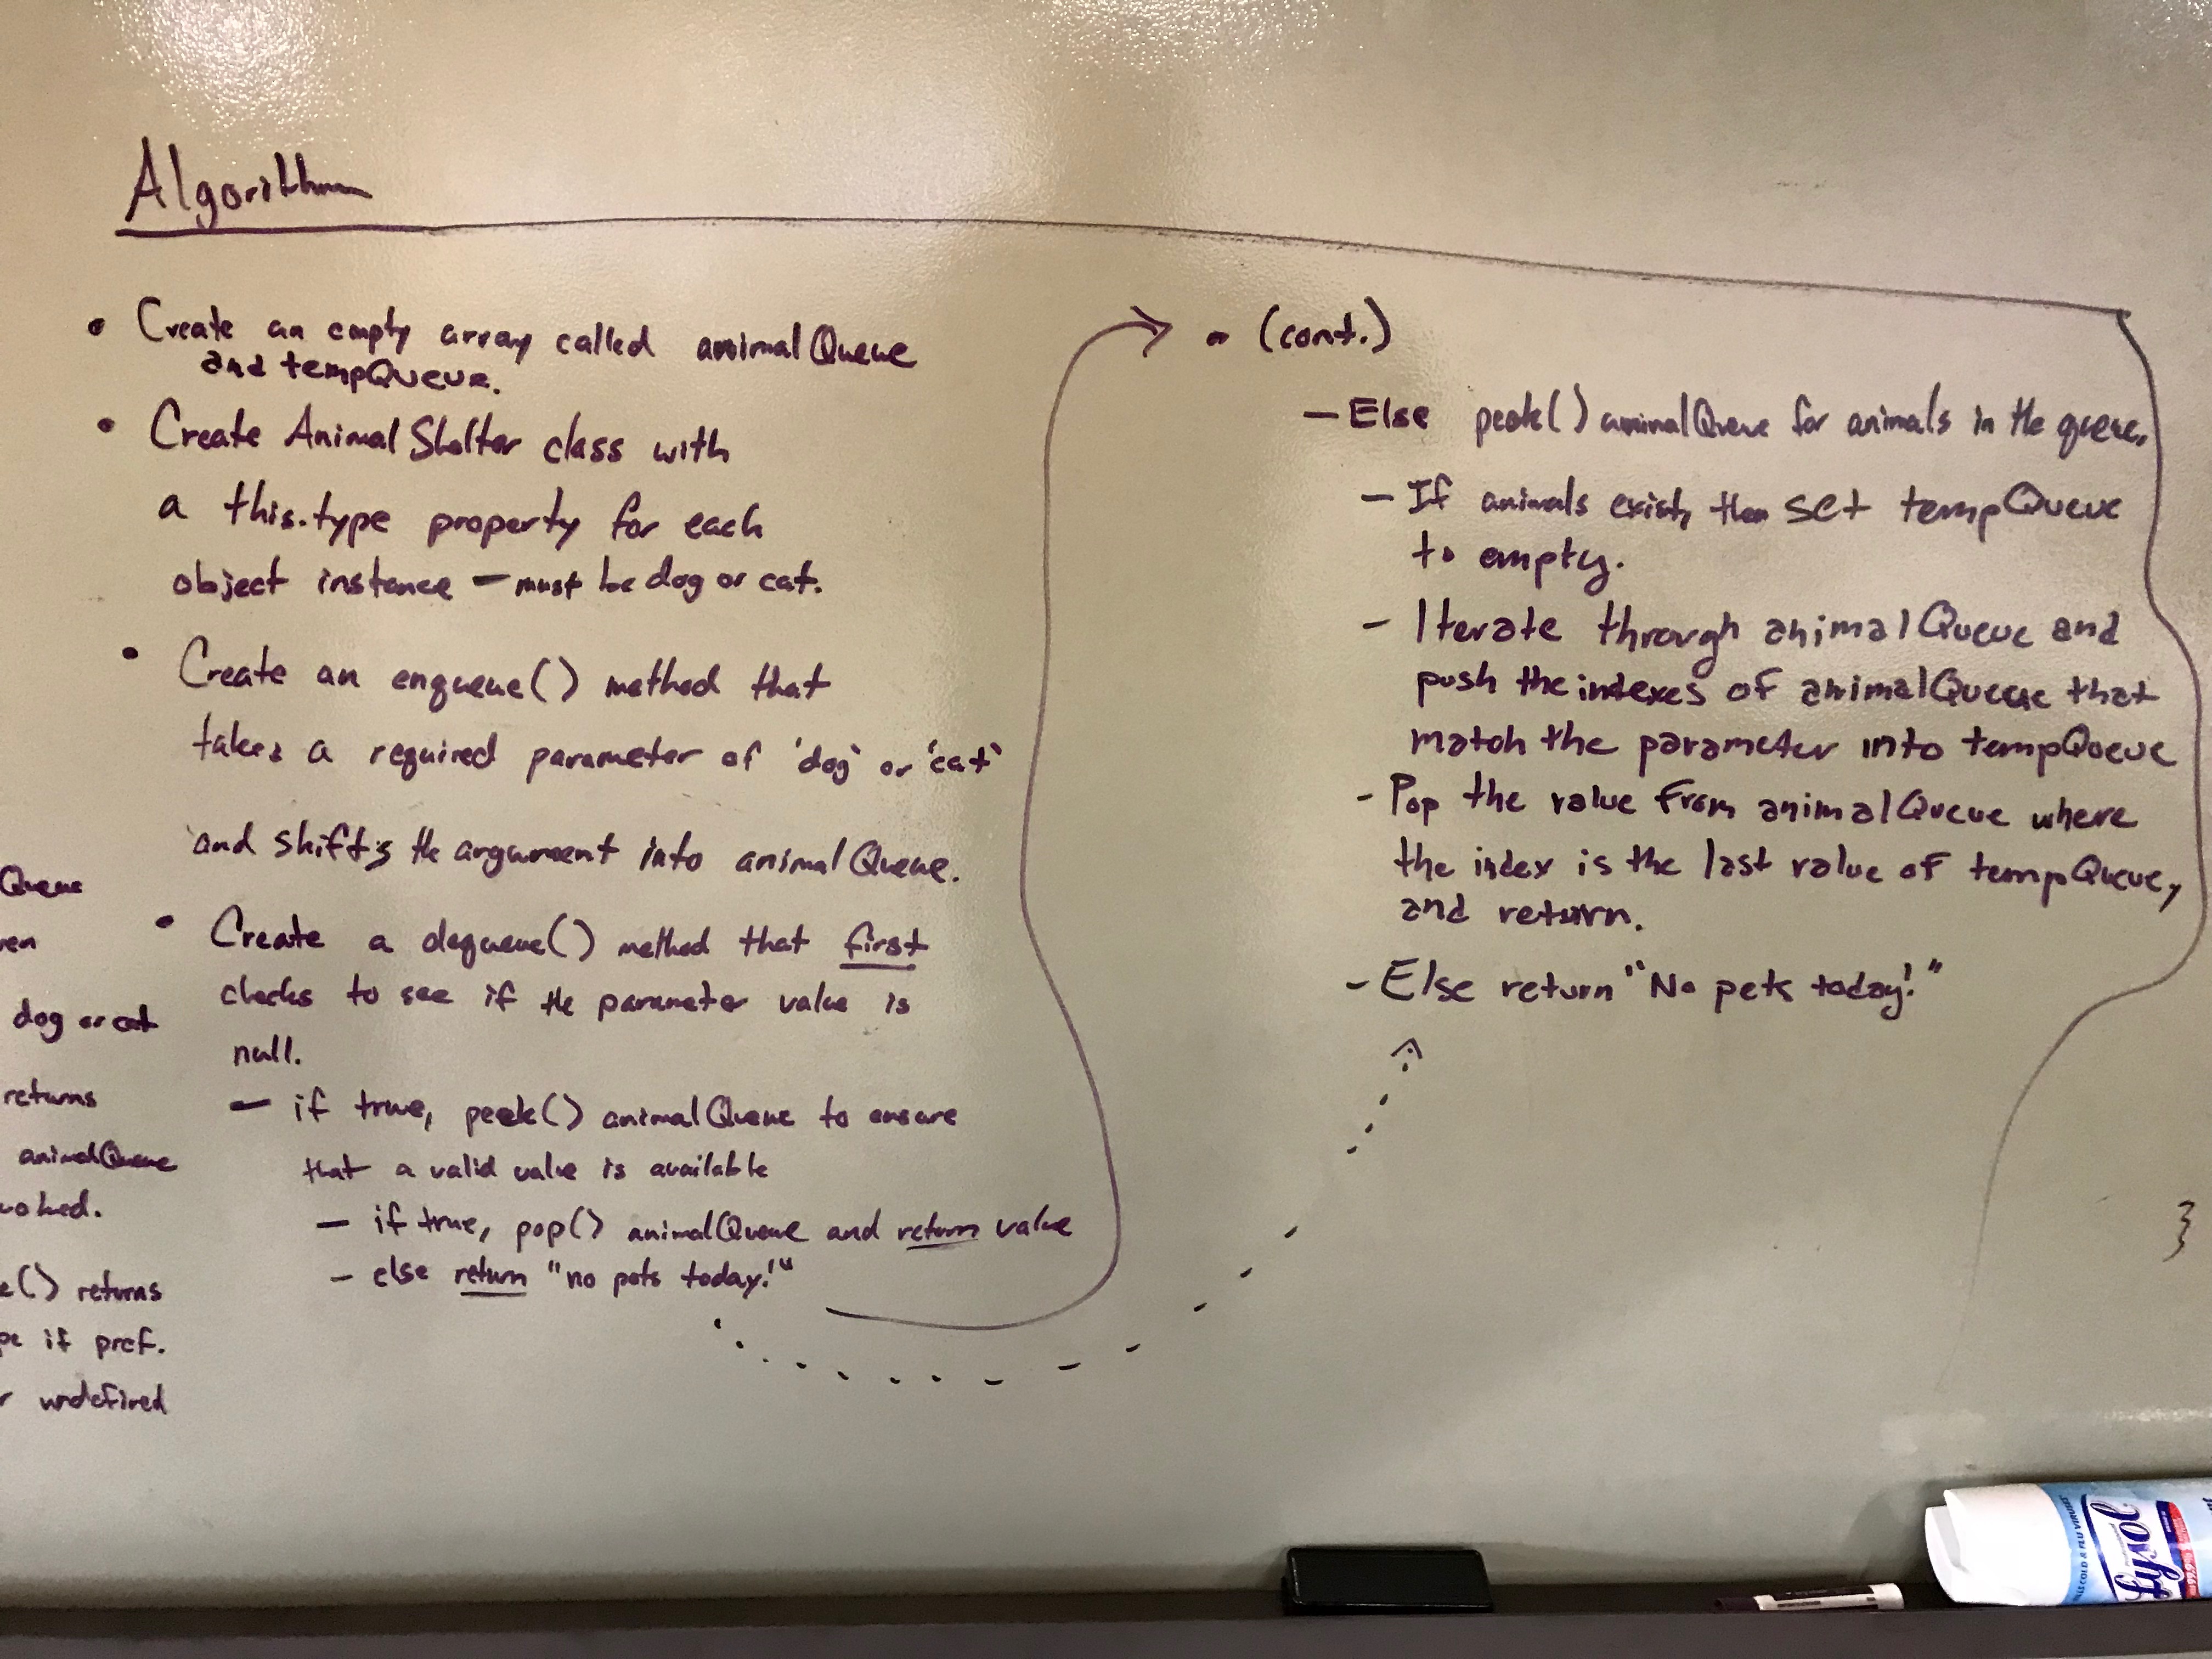 Algorithm
• Create an empty array called animalQueue
and tempQueue.
• Create AnimalShelter class with
a this.type property for each
object instance — must be dog or cat.
• Create an enqueue() method that
takes a required parameter of 'dog' or 'cat'
and shifts the argument into animalQueue.
• Create a dequeue() method that first
checks to see if the parameter value is
null.
— if true, peek() animalQueue to ensure
that a valid value is available
— if true, pop() animalQueue and return value
— else return "no pets today!"
• (cont.)
— Else peek() animalQueue for animals in the queue.
— If animals exist, then set tempQueue
to empty.
— Iterate through animalQueue and
push the indexes of animalQueue that
match the parameter into tempQueue
- Pop the value from animalQueue where
the index is the last value of tempQueue,
and return.
- Else return "No pets today!"
Queue
dog or cat
returns
animalQueue
() returns
if pref.
undefined
}
Lysol